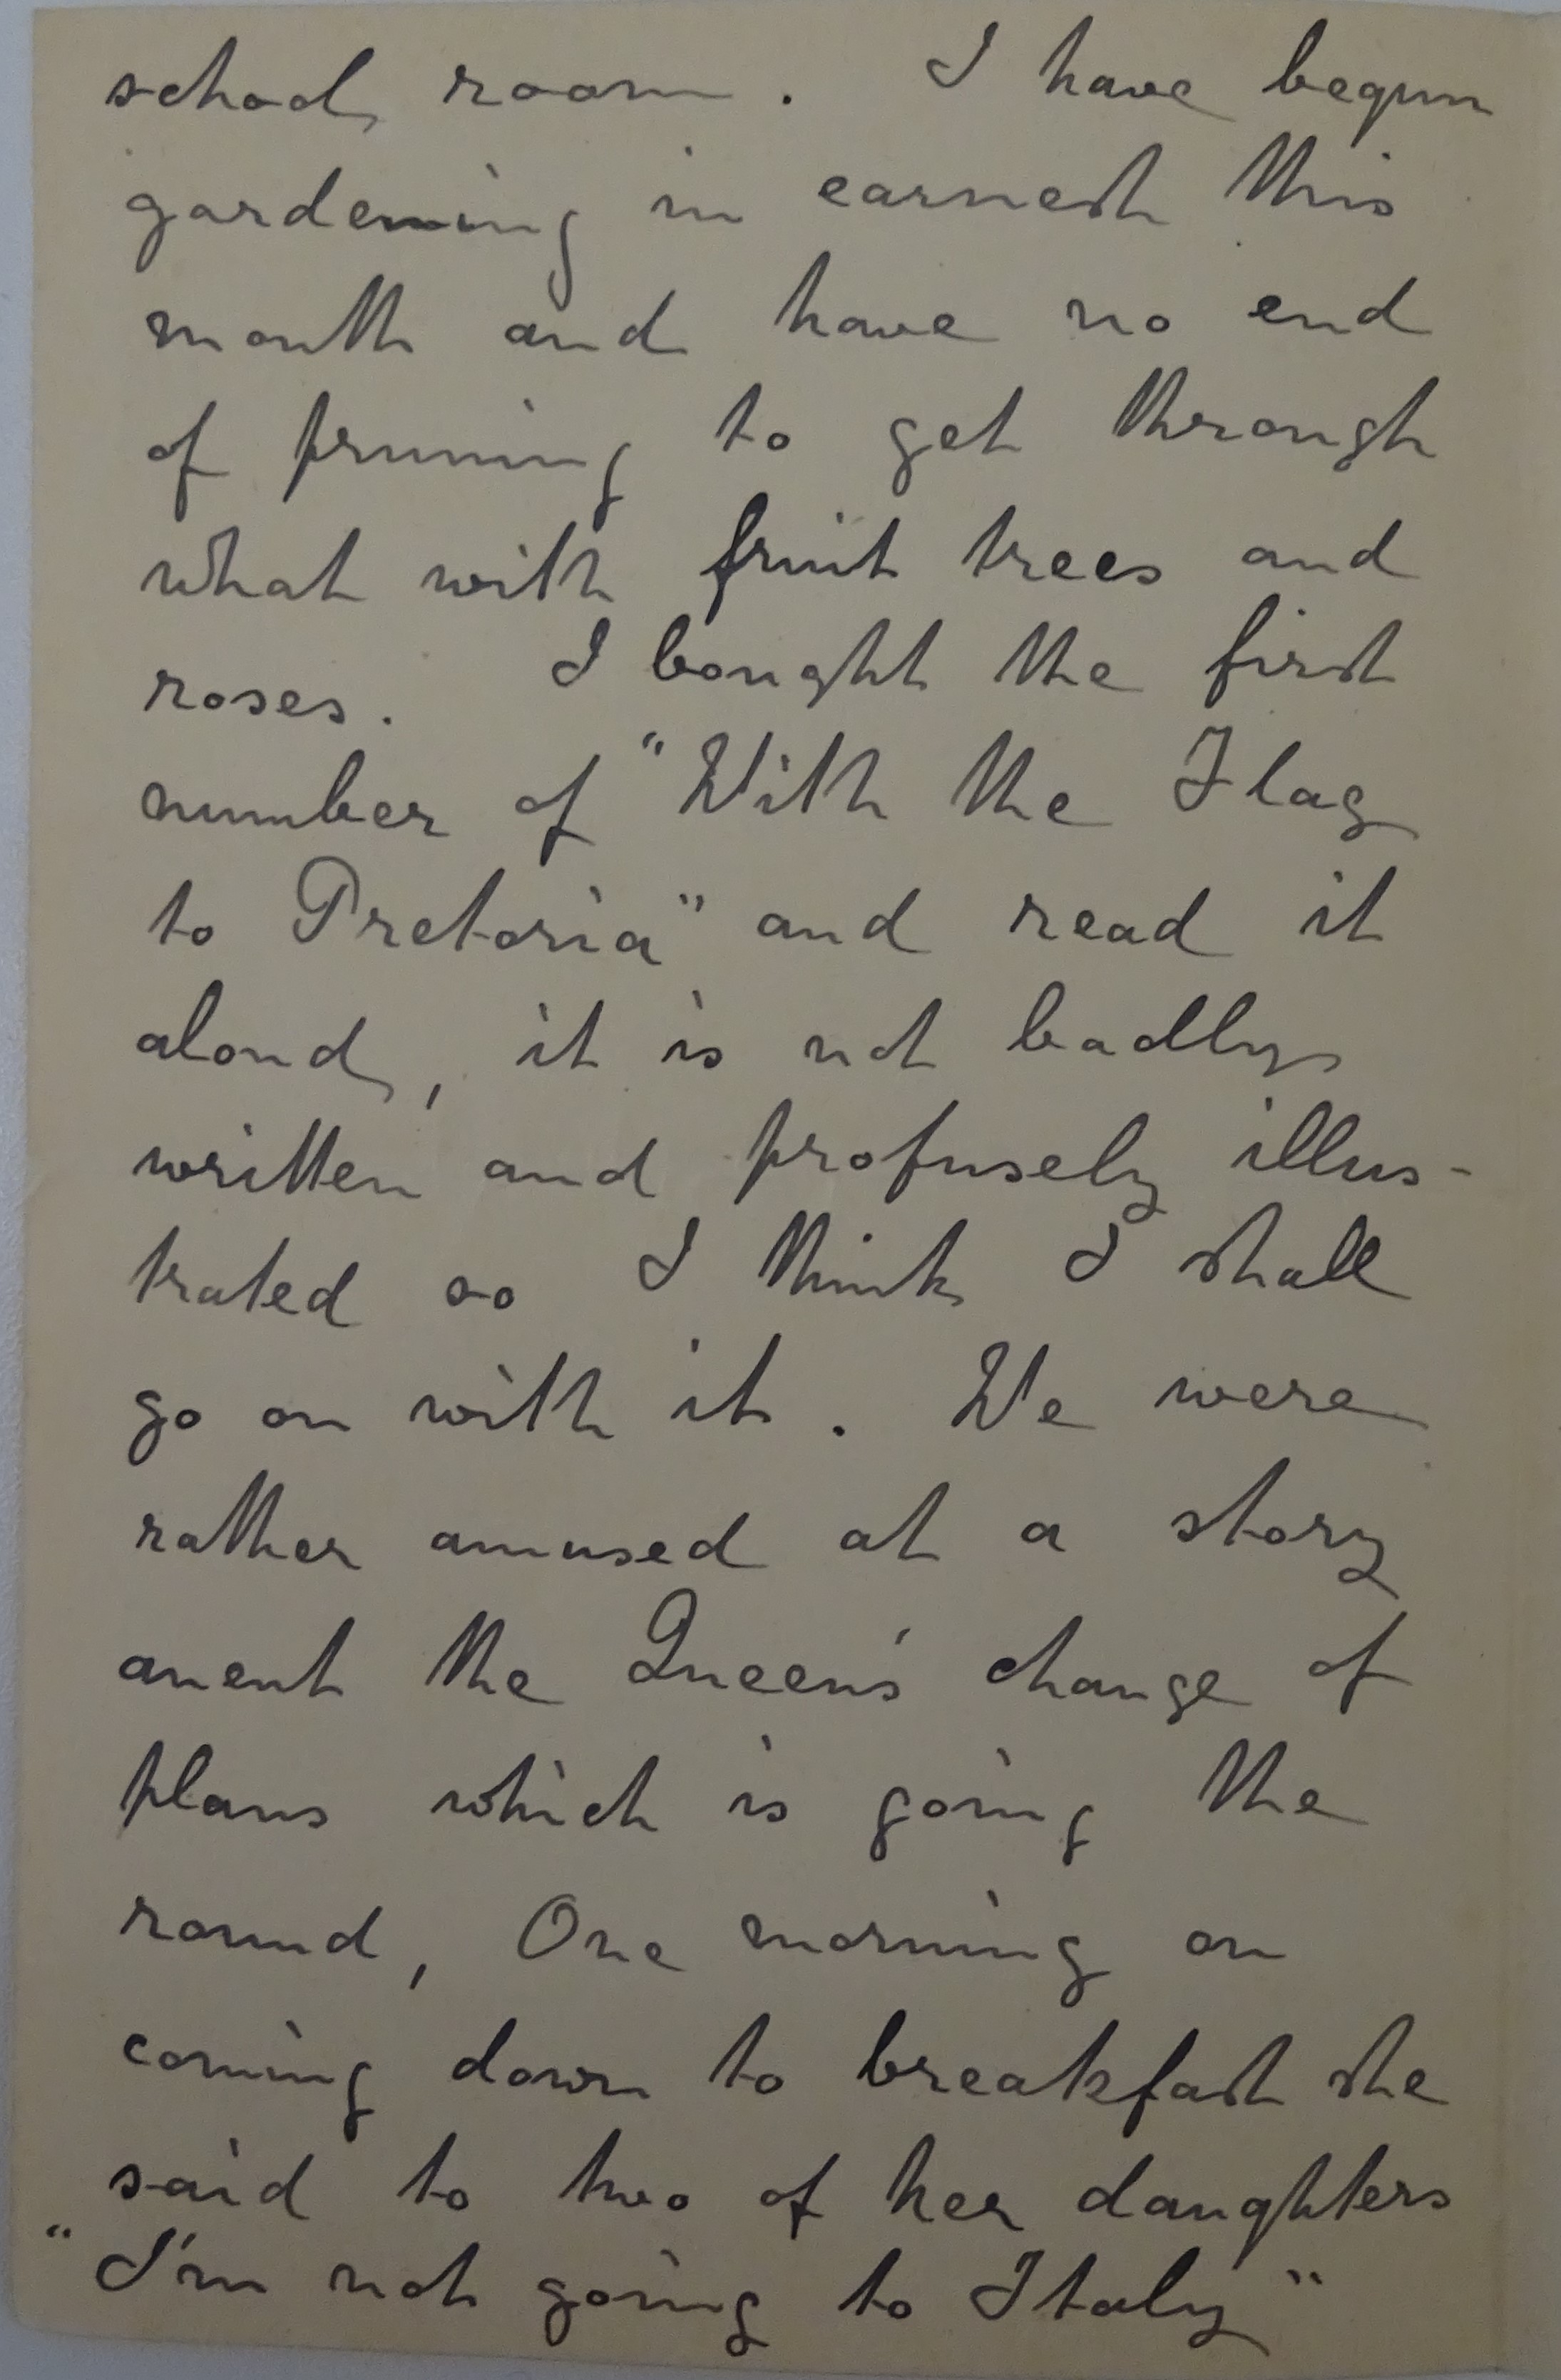 school room. I have begun
gardening in earnest this
month and have no end
of pruning to get through
what with fruit trees and
roses. I bought the first
number of "With the Flag
to Pretoria" and read it
aloud, it is not badly
written and profusely illus-
trated so I think I shall
go on with it. We were
rather amused at a story
anent the Queen's change of
plans which is going the
round, One morning on
coming down to breakfast she
said to two of her daughters
"I'm not going to Italy"